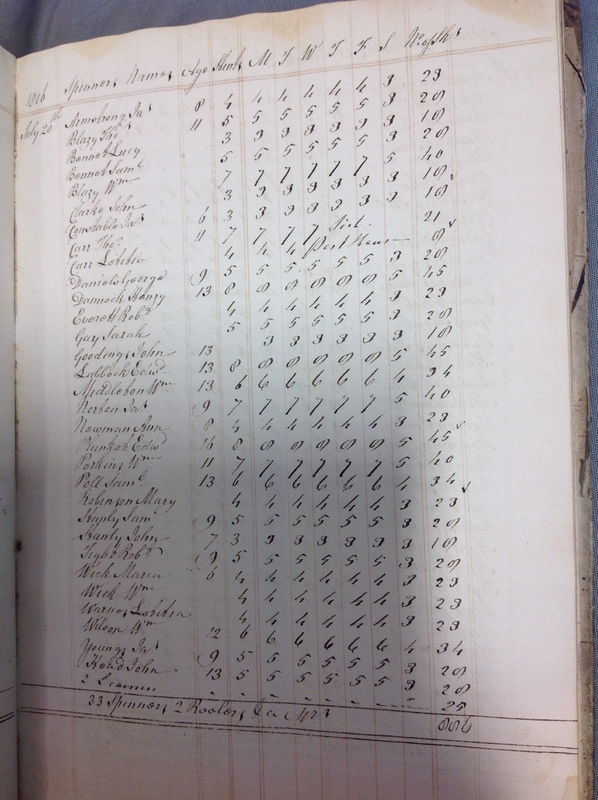 1806 Spinners Names Age Skns M T W T F S No of Sks
July 20th Armstrong Jas 8 4 4 4 4 4 4 3 23
Blazy Thos 11 5 5 5 5 5 5 3 28
Bennet Lucy 3 3 3 3 3 3 3 18
Bennet Saml 5 5 5 5 5 5 3 28
Blazy Wm 7 7 7 7 7 7 5 40
Clarke John 3 3 3 3 3 3 3 18
Constable Jas 6 3 3 3 3 3 3 3 18
Carr Thos 11 7 7 7 7 Sick 21
Carr Letitia 4 4 4 Pest House 8
Daniels George 9 5 5 5 5 5 5 3 28
Dannock Henry 13 8 8 8 8 8 8 5 45
Everett Robt 4 4 4 4 4 4 3 23
Gay Sarah 5 5 5 5 5 5 3 28
Goodings John 13 3 3 3 3 3 3 18
Lubbock Edwd 13 8 8 8 8 8 8 5 45
Middleton Wm 13 6 6 6 6 6 6 4 34
Norton Jas 9 7 7 7 7 7 7 5 40
Newman Ann 8 4 4 4 4 4 4 3 23
Plunket Edwd 16 8 8 8 8 8 8 5 45
Perkins Wm 11 7 7 7 7 7 7 5 40
Poll Saml 13 6 6 6 6 6 6 4 34
Robinson Mary 4 4 4 4 4 4 3 23
Staply Saml 9 5 5 5 5 5 5 3 28
Stanly John 7 3 3 3 3 3 3 3 18
Tight Robt 9 5 5 5 5 5 5 3 28
Wick Maria 6 4 4 4 4 4 4 3 23
Wick Wm 4 4 4 4 4 4 3 23
Warnes Letitia 4 4 4 4 4 4 3 23
Wilson Wm 12 6 6 6 6 6 6 4 34
Youngs Jas 9 5 5 5 5 5 5 3 28
Head John 13 5 5 5 5 5 5 3 28
2 Learners - - - - - - - 25
33 Spinners 2 Reelers 886